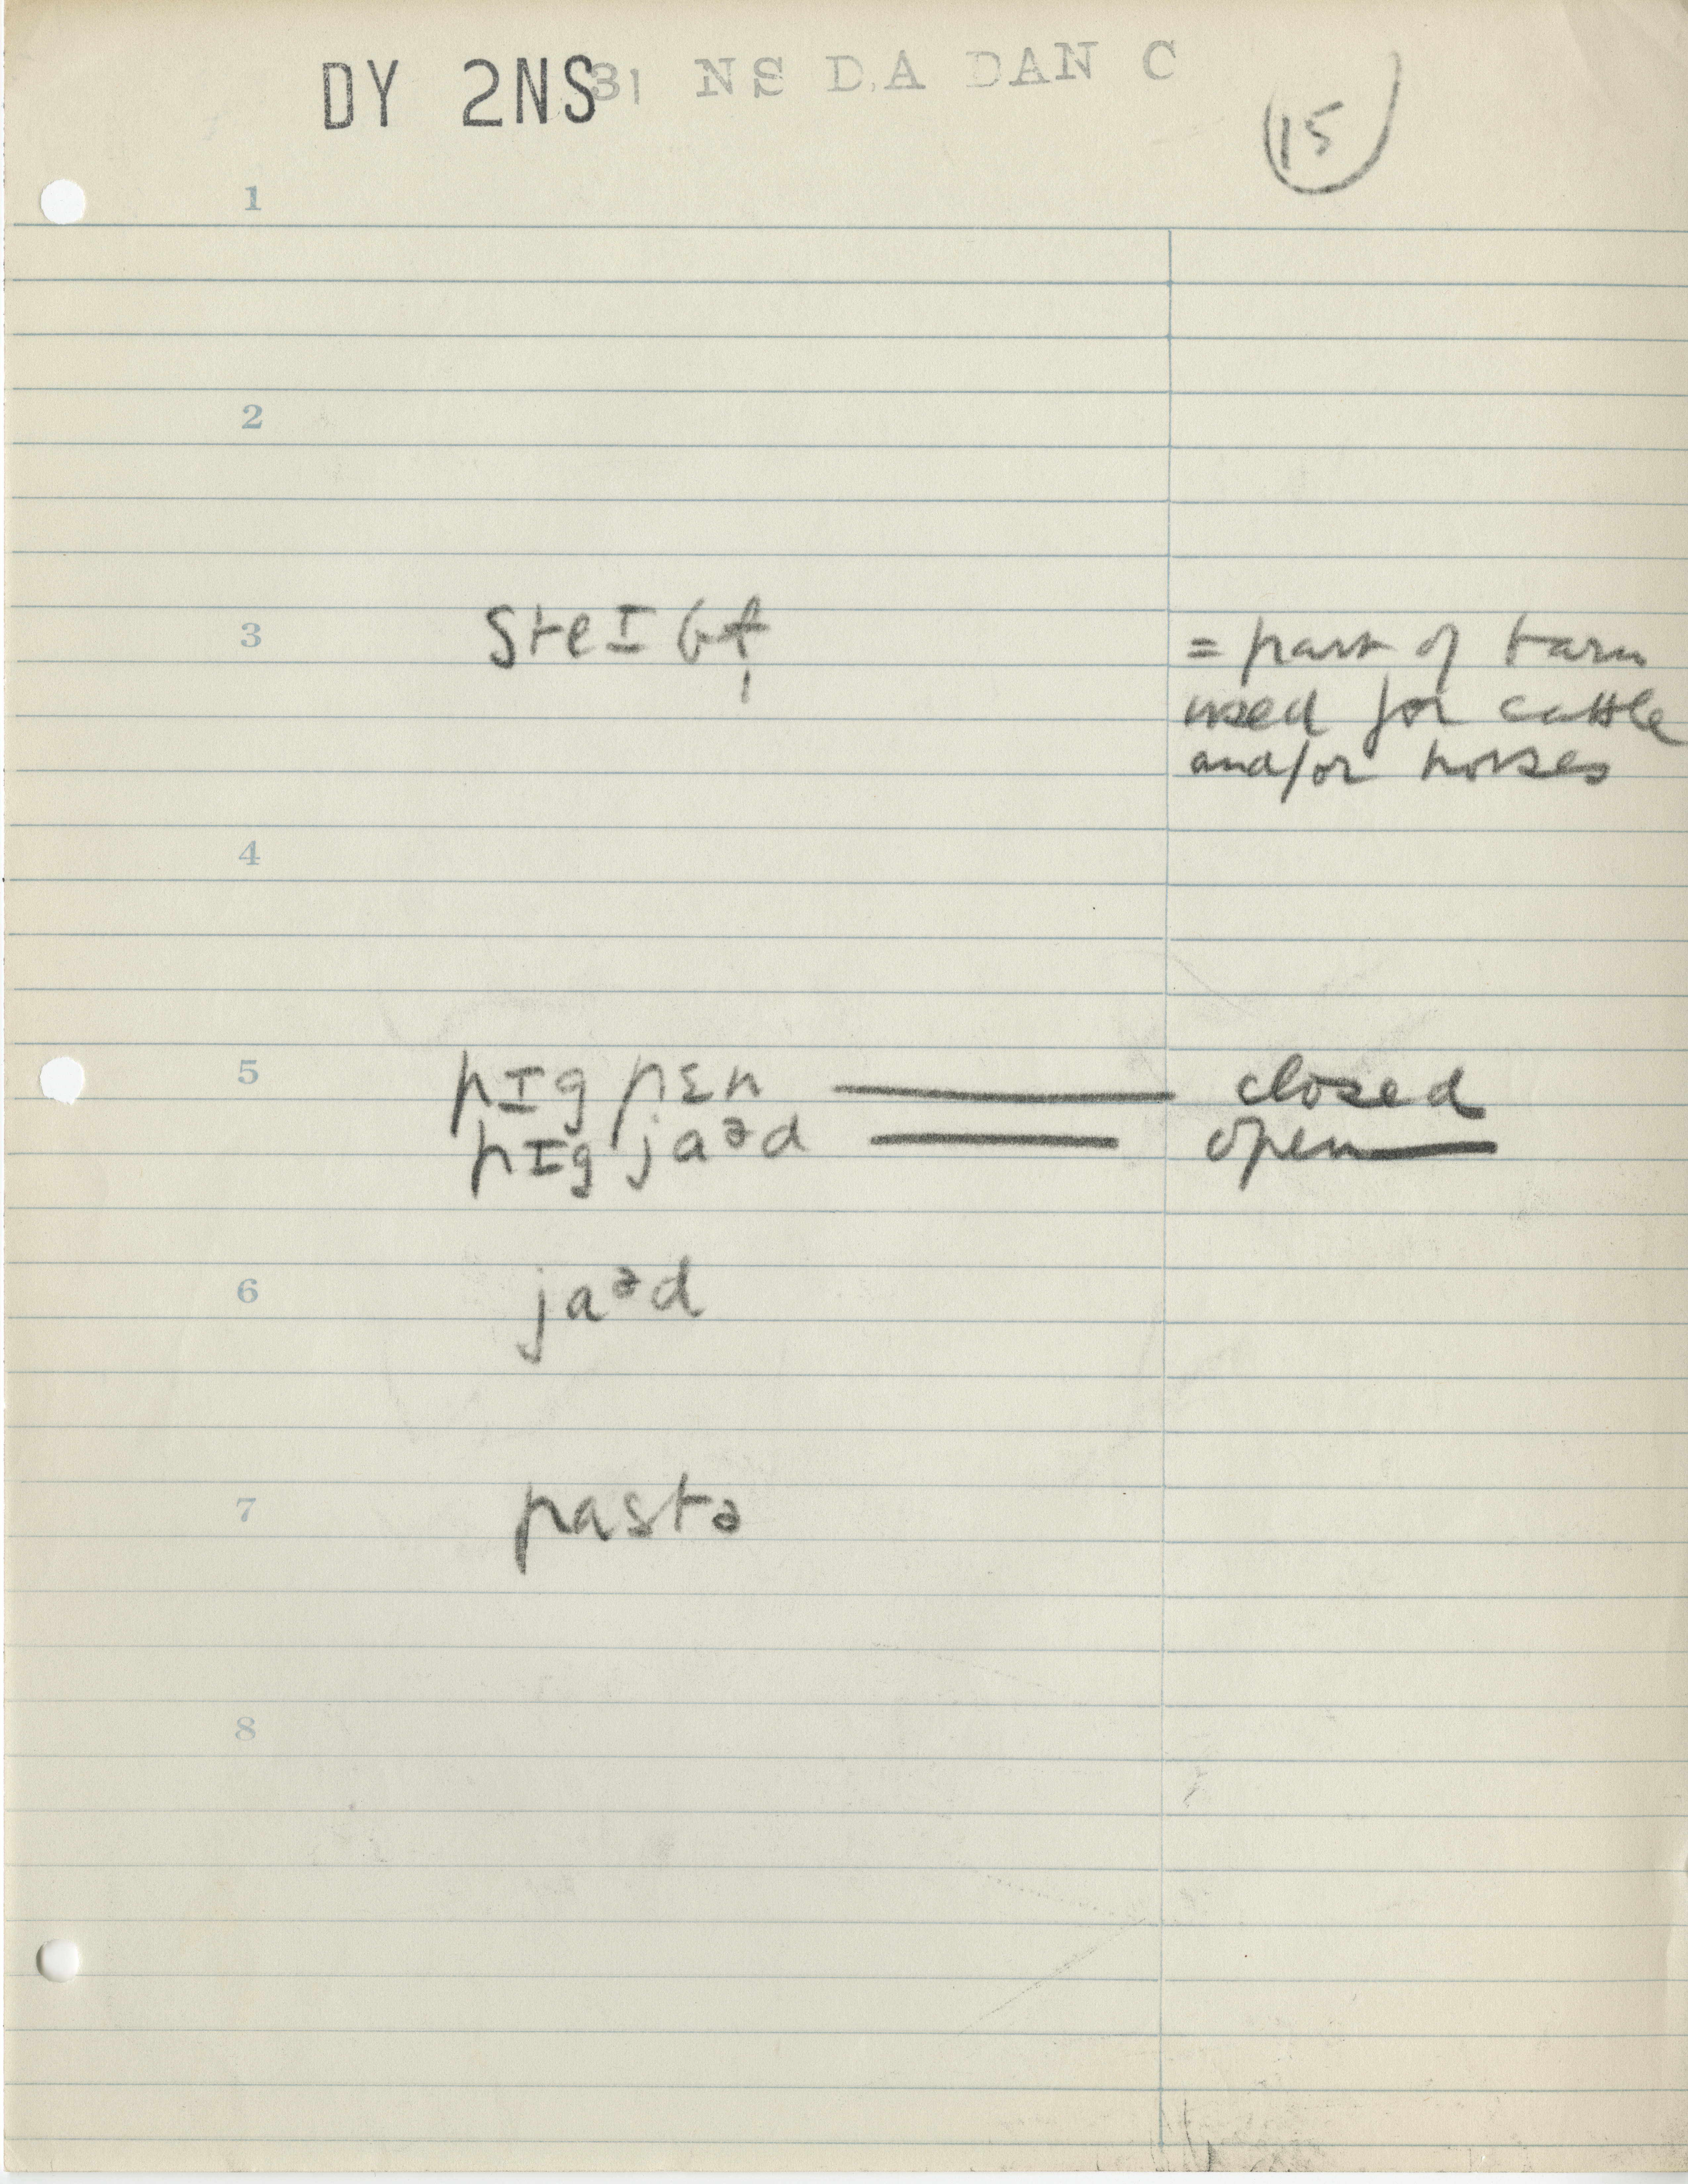 DY 2NS 31 NS D.A DAN C
15
1
2
3 steɪbɫ̩ = part of barn
used for cattle
and/or horses
4
5 pɪg pɛn — closed
pɪg jaᵊd — open
6 jaᵊd
7 pastə
8